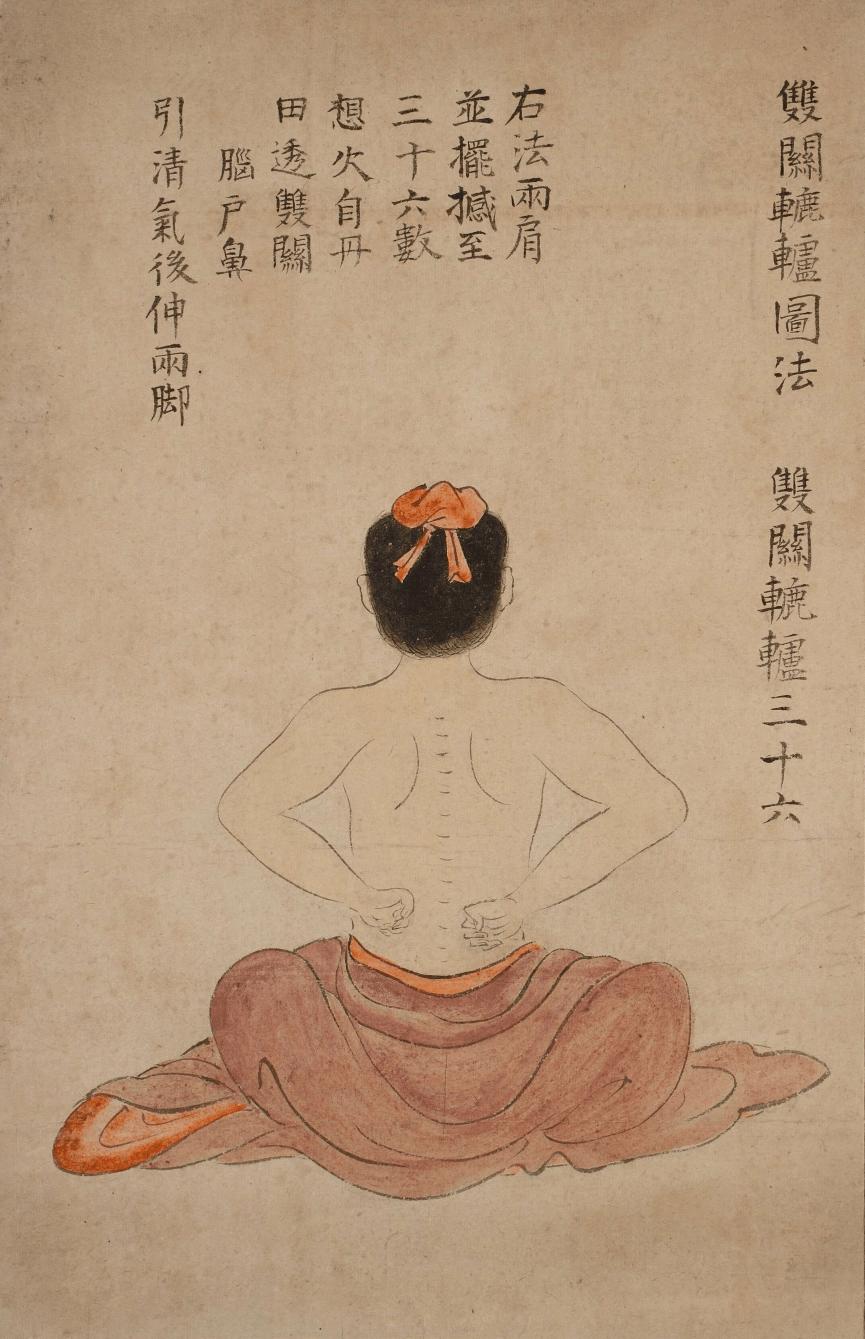 雙關轆轤圖法
雙關轆轤三十六
右法兩肩
並擺撼至
三十六數
想火自丹
田透雙關
腦戶鼻
引清氣後伸兩脚